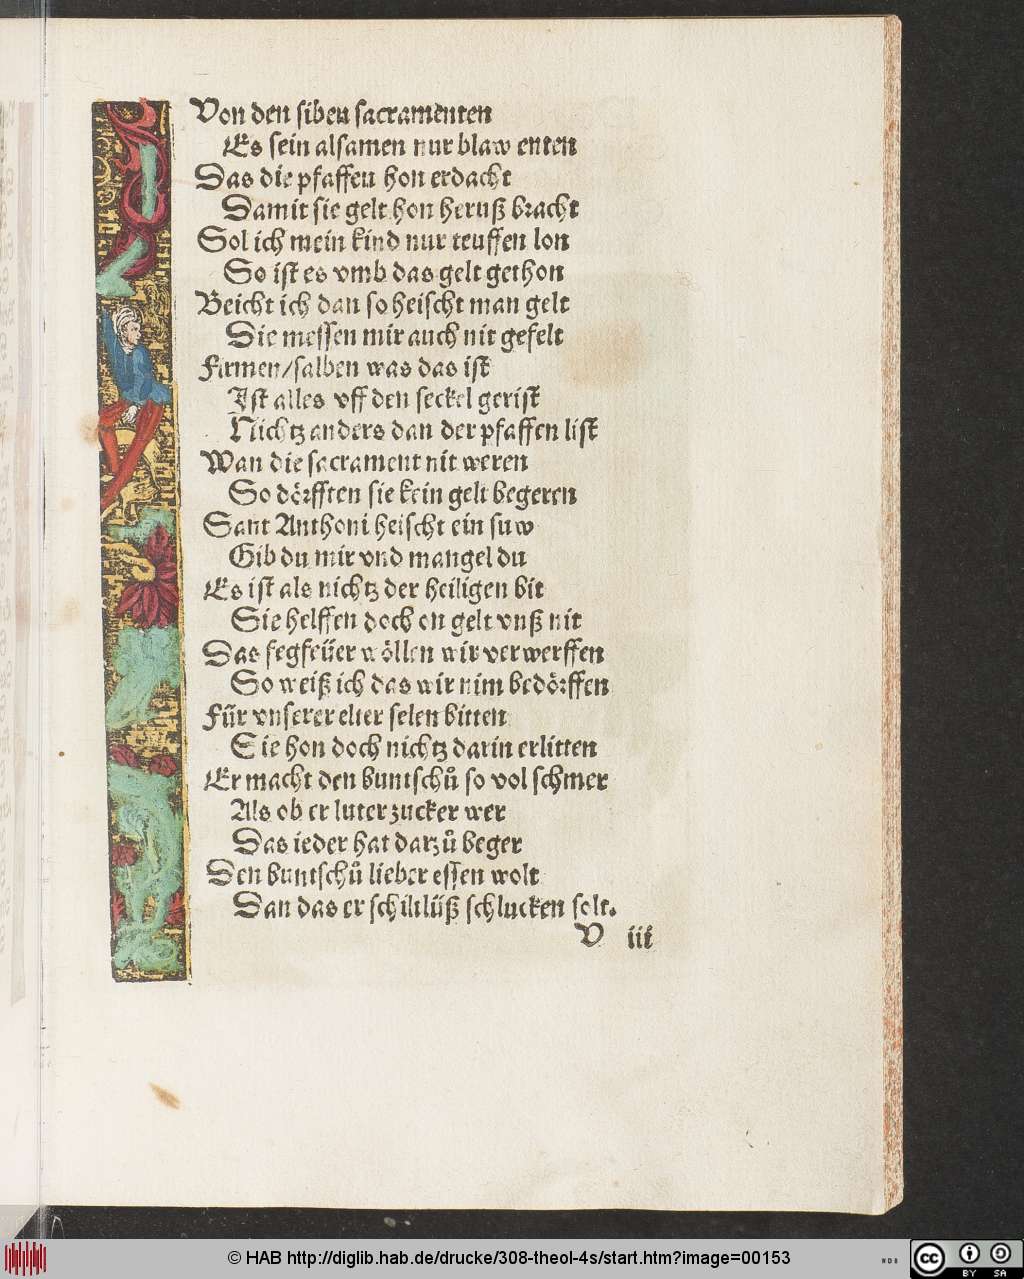 Von den siben sacramenten
Es sein alsamen nur blaw enten
Das die pfaffen hon erdacht
Damit sie gelt hon heruß bracht
Sol ich mein kind nur teuffen lon
So ist es vmb das gelt gethon
Beicht ich dan so heischt man gelt
Die messen mir auch nit gefelt
Firmen/salben was das ist
Ist alles vff den seckel gerist
Nichtz anders dan der pfaffen list
Wan die sacrament nit weren
So dörfften sie kein gelt begeren
Sant Anthoni heischt ein suw
Gib du mir vnd mangel du
Es ist als nichtz der heiligen bit
Sie helffen doch on gelt vnß nit
Das fegfeüer wöllen wir verwerffen
So weiß ich das wir nim bedörffen
Für vnserer elter selen bitten
Sie hon doch nichtz darin erlitten
Er macht den buntschů so vol schmer
Als ob er luter zucker wer
Das ieder hat darzů beger
Den buntschů lieber essen wolt
Dan das er schiltlüß schlucken solt.
V iii
© HAB http://diglib.hab.de/drucke/308-theol-4s/start.htm?image=00153
WDB
cc BY SA